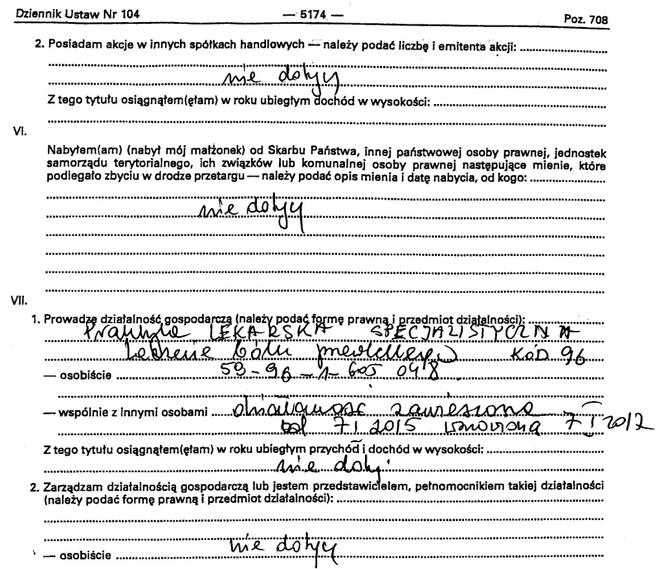 Dziennik Ustaw Nr 104 — 5174 — Poz. 708
2. Posiadam akcje w innych spółkach handlowych — należy podać liczbę i emitenta akcji:
nie dotyczy
Z tego tytułu osiągnąłem(ęłam) w roku ubiegłym dochód w wysokości:
VI.
Nabyłem(am) (nabył mój małżonek) od Skarbu Państwa, innej państwowej osoby prawnej, jednostek
samorządu terytorialnego, ich związków lub komunalnej osoby prawnej następujące mienie, które
podlegało zbyciu w drodze przetargu — należy podać opis mienia i datę nabycia, od kogo:
nie dotyczy
VII.
1. Prowadzę działalność gospodarczą (należy podać formę prawną i przedmiot działalności):
Praktyka LEKARSKA SPECJALISTYCZNA
Leczenie bólu przewlekłego KOD 96
— osobiście 59-96-1-605 048
— wspólnie z innymi osobami działalność zawieszona
od 7 I 2015 7 I 2012
Z tego tytułu osiągnąłem(ęłam) w roku ubiegłym przychód i dochód w wysokości:
nie doty.
2. Zarządzam działalnością gospodarczą lub jestem przedstawicielem, pełnomocnikiem takiej działalności
(należy podać formę prawną i przedmiot działalności):
nie dotyczy
— osobiście